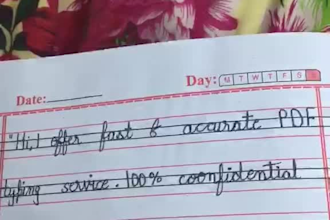 Day: M T W T F S S
Date:
"Hi, I offer fast & accurate PDF
typing service. 100% coonfidential